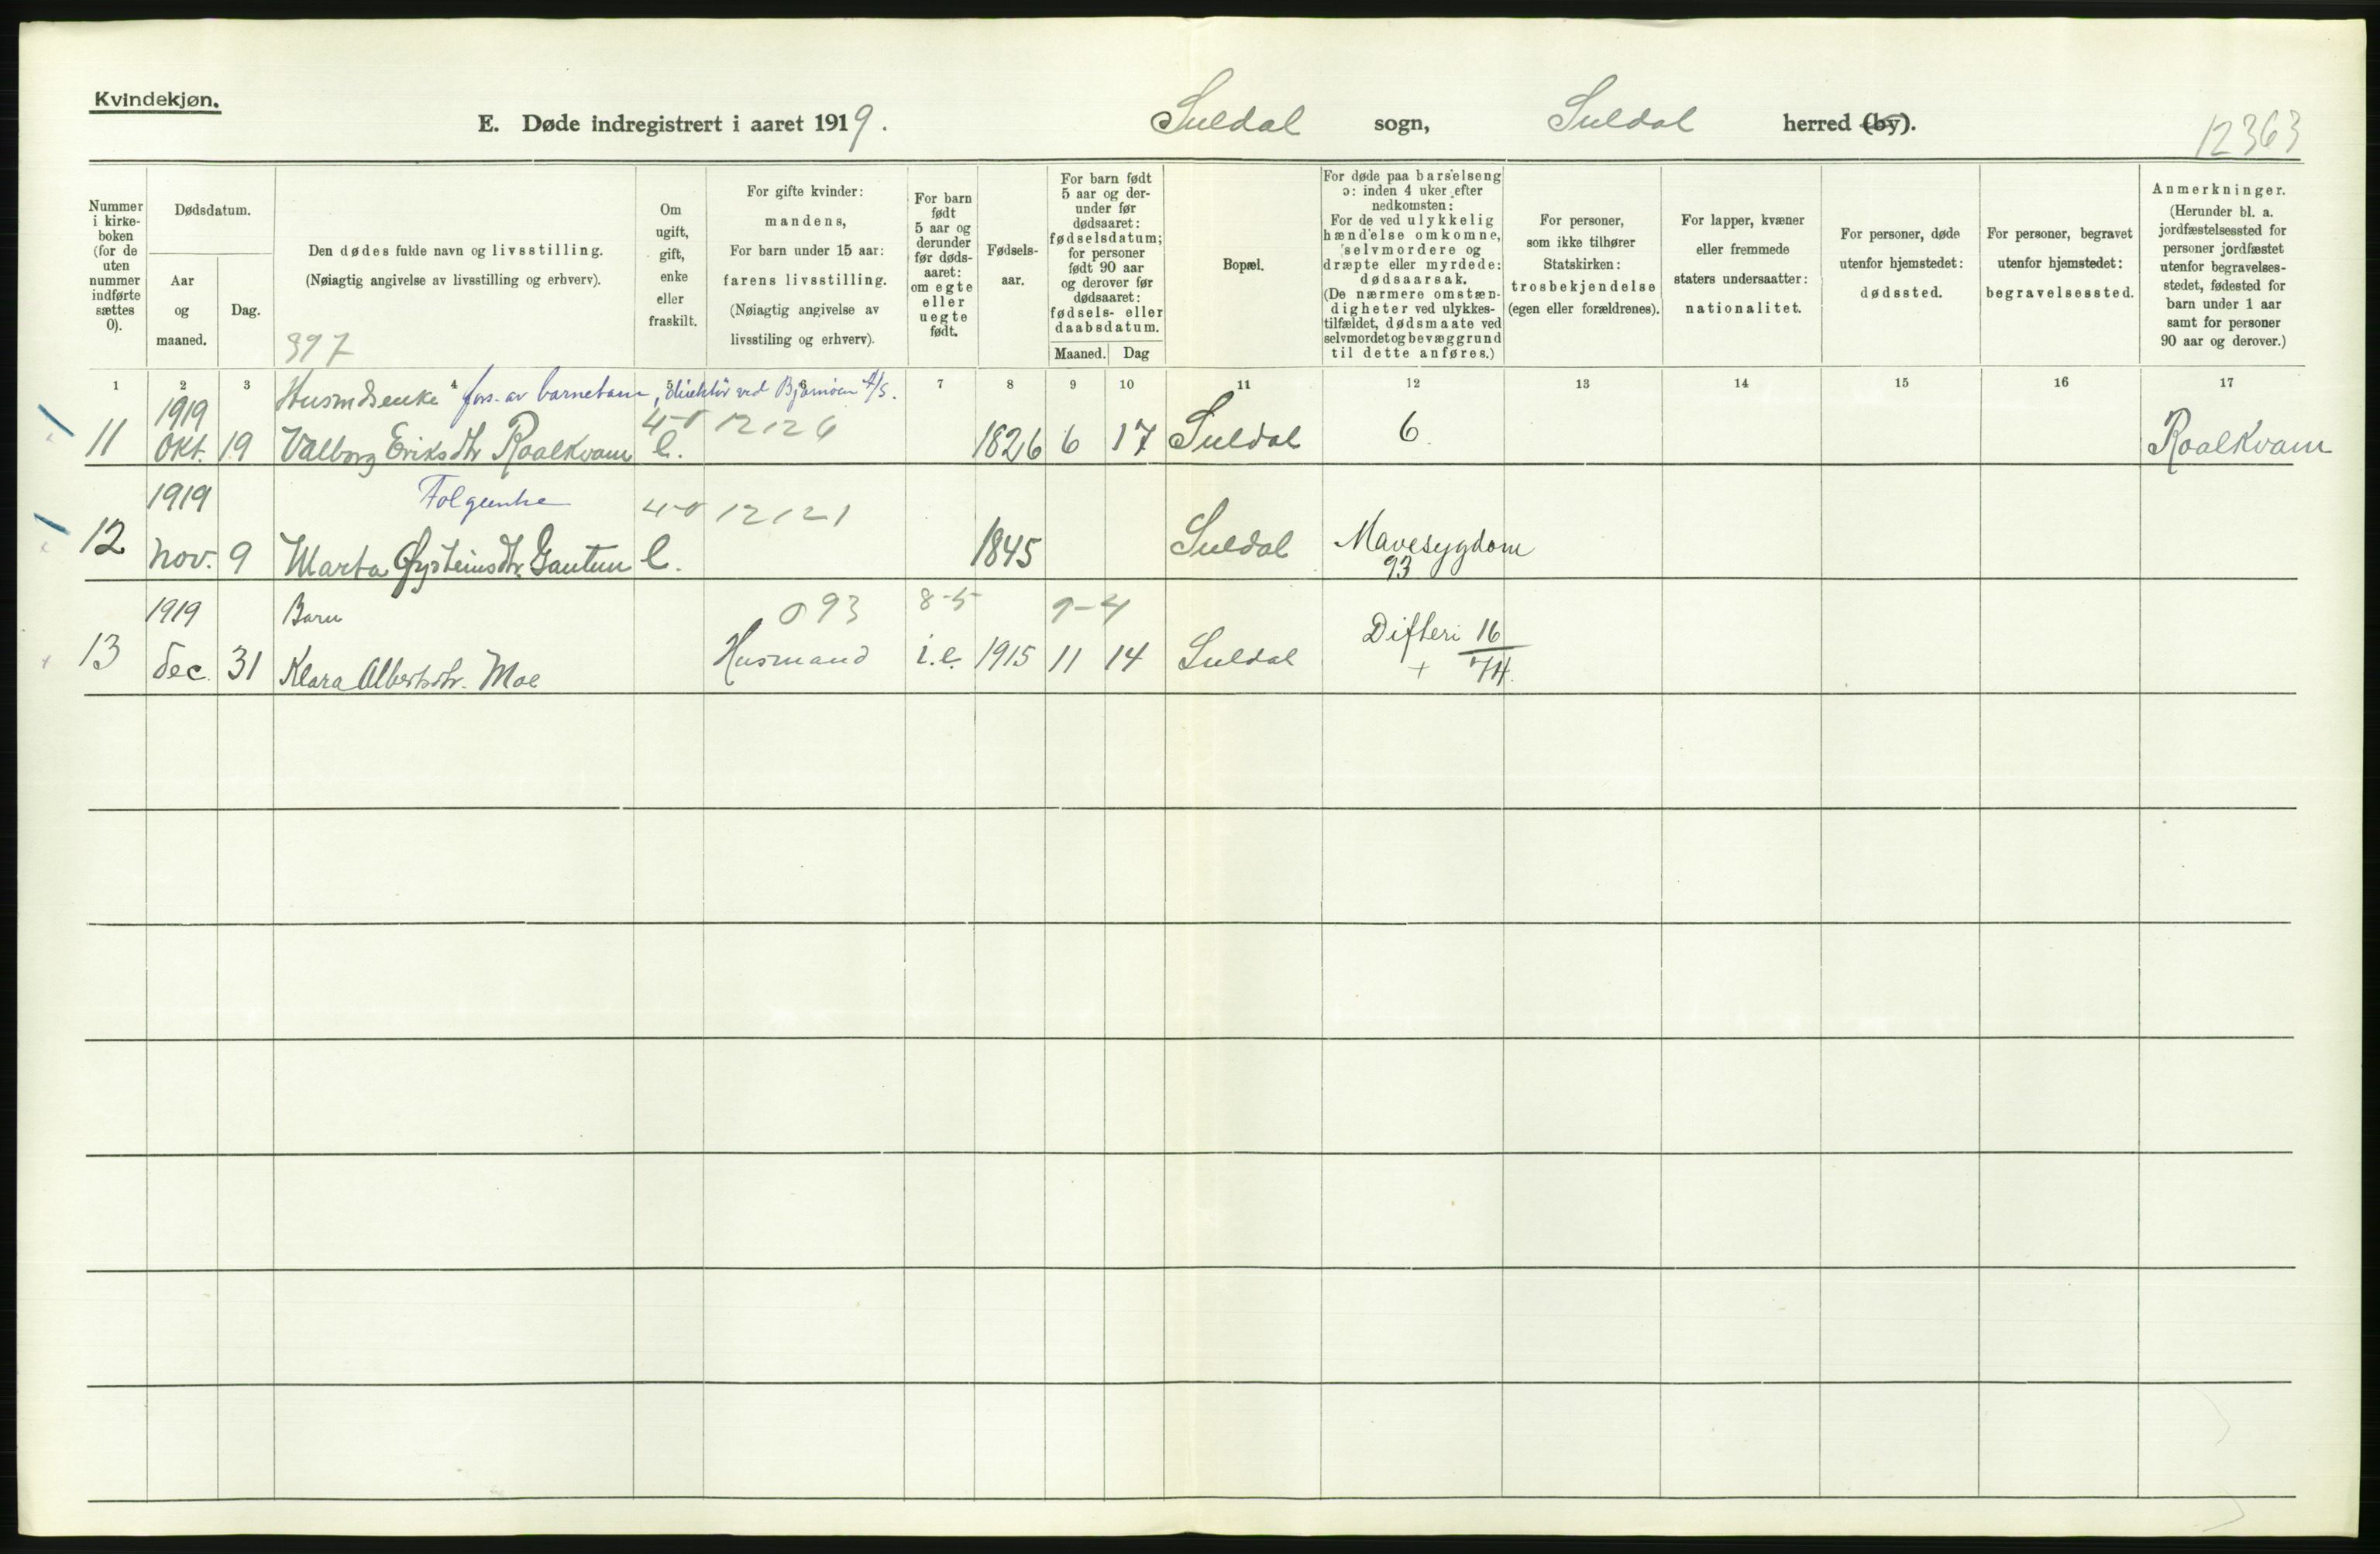 Kvindekjøn.
E. Døde indregistrert i aaret 1919. Suldal sogn, Suldal herred (by).
12363
Nummer i kirke-boken (for de uten nummer indførte sættes 0).
Dødsdatum.
Aar og maaned.
Dag.
Den dødes fulde navn og livsstilling.
(Nøiagtig angivelse av livsstilling og erhverv).
397
Om ugift, gift, enke eller fraskilt.
For gifte kvinder:
mandens,
For barn under 15 aar:
farens livsstilling.
(Nøiagtig angivelse av
livsstiling og erhverv).
For barn født 5 aar og derunder før døds-aaret: om egte eller uegte født.
Fødsels-aar.
For barn født 5 aar og der-under før dødsaaret: fødselsdatum; for personer født 90 aar og derover før dødsaaret: fødsels- eller daabsdatum.
Maaned. Dag
Bopæl.
For døde paa barselseng ɔ: inden 4 uker efter nedkomsten:
For de ved ulykkelig hændelse omkomne, selvmordere og dræpte eller myrdede: dødsaarsak.
(De nærmere omstæn-digheter ved ulykkes-tilfældet, dødsmaate ved selvmordet og bevæggrund til dette anføres.)
For personer, som ikke tilhører Statskirken: trosbekjendelse (egen eller forældrenes).
For lapper, kvæner eller fremmede staters undersaatter: nationalitet.
For personer, døde utenfor hjemstedet: dødssted.
For personer, begravet utenfor hjemstedet: begravelsessted.
Anmerkninger.
(Herunder bl. a. jordfæstelsessted for personer jordfæstet utenfor begravelses-stedet, fødested for barn under 1 aar samt for personer 90 aar og derover.)
1 2 3 4 5 6 7 8 9 10 11 12 13 14 15 16 17
1919 Husmdsenke fors. av barnebarn, direktør ved Bjørnøen A/S.
11 Okt. 19 Valborg Eriksdtr Roalkvam e. 12126 1826 6 17 Suldal 6 Roalkvam
1919 Folgeenke
12 Nov. 9 Marta Øysteinsdtr. Gautun e. 12121 1845 Suldal Mavesygdom
93
1919 Barn 093 8-5 9-4
13 Dec. 31 Klara Albertsdtr. Moe Husmand i.e. 1915 11 14 Suldal Difteri 16
+ 74.